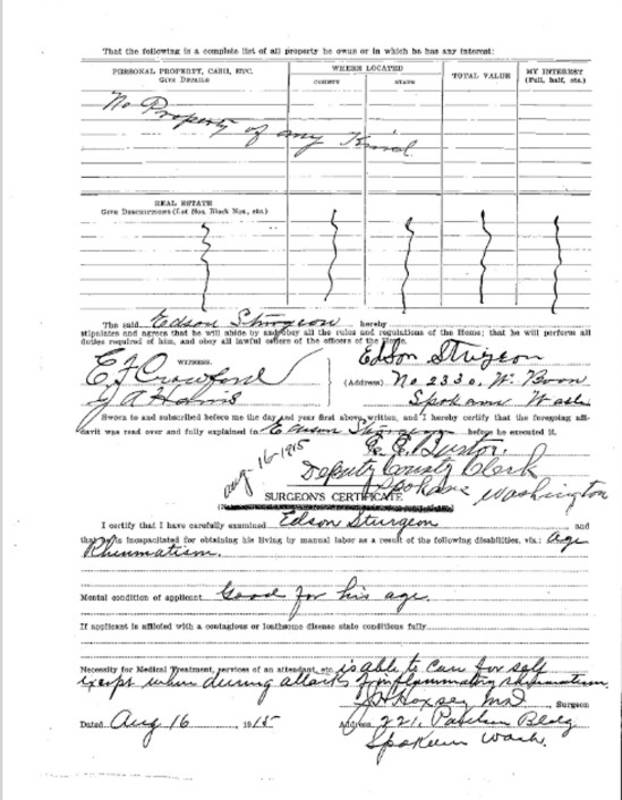 That the following is a complete list of all property he owns or in which he has any interest:
PERSONAL PROPERTY, CASH, ETC.
Give Details
WHERE LOCATED
COUNTY
STATE
TOTAL VALUE
MY INTEREST
(Full, half, etc.)
No Property of any Kind
REAL ESTATE
Give Descriptions (Lot Nos. Block Nos., etc.)
The said Edson Sturgeon hereby
stipulates and agrees that he will abide by and obey all the rules and regulations of the Home; that he will perform all
duties required of him, and obey all lawful orders of the officers of the Home.
WITNESS.
Edson Sturgeon
E F Crawford
(Address) No 2330, W. Boon
J A Harris
Spokane Wash
Sworn to and subscribed before me the day and year first above written, and I hereby certify that the foregoing affi-
davit was read over and fully explained to Edson Sturgeon before he executed it.
Aug-16-1915
Deputy County Clerk
Spokane Washington
SURGEON'S CERTIFICATE
I certify that I have carefully examined Edson Sturgeon and
that he is incapacitated for obtaining his living by manual labor as a result of the following disabilities, viz.: Age
Rheumatism.
Mental condition of applicant Good for his age.
If applicant is afflicted with a contagious or loathsome disease state conditions fully
Necessity for Medical Treatment, services of an attendant, etc. is able to care for self
except when during attacks of inflammatory rheumatism.
Hoxsey MD, Surgeon
Dated Aug 16 1915
Address 221, Paulsen Bldg
Spokane Wash.